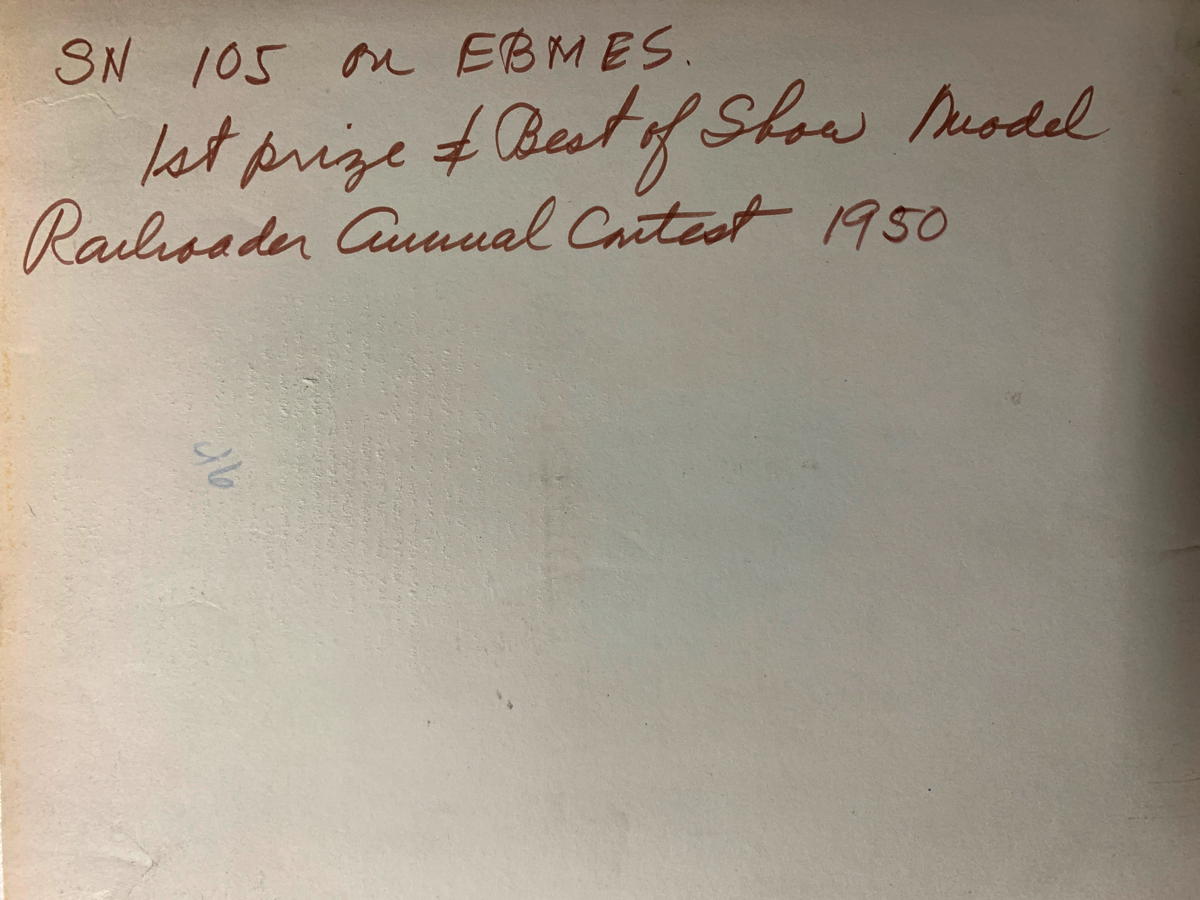 SN 105 on EBMES.
1st prize & Best of Show Model
Railroader Annual Contest 1950
46